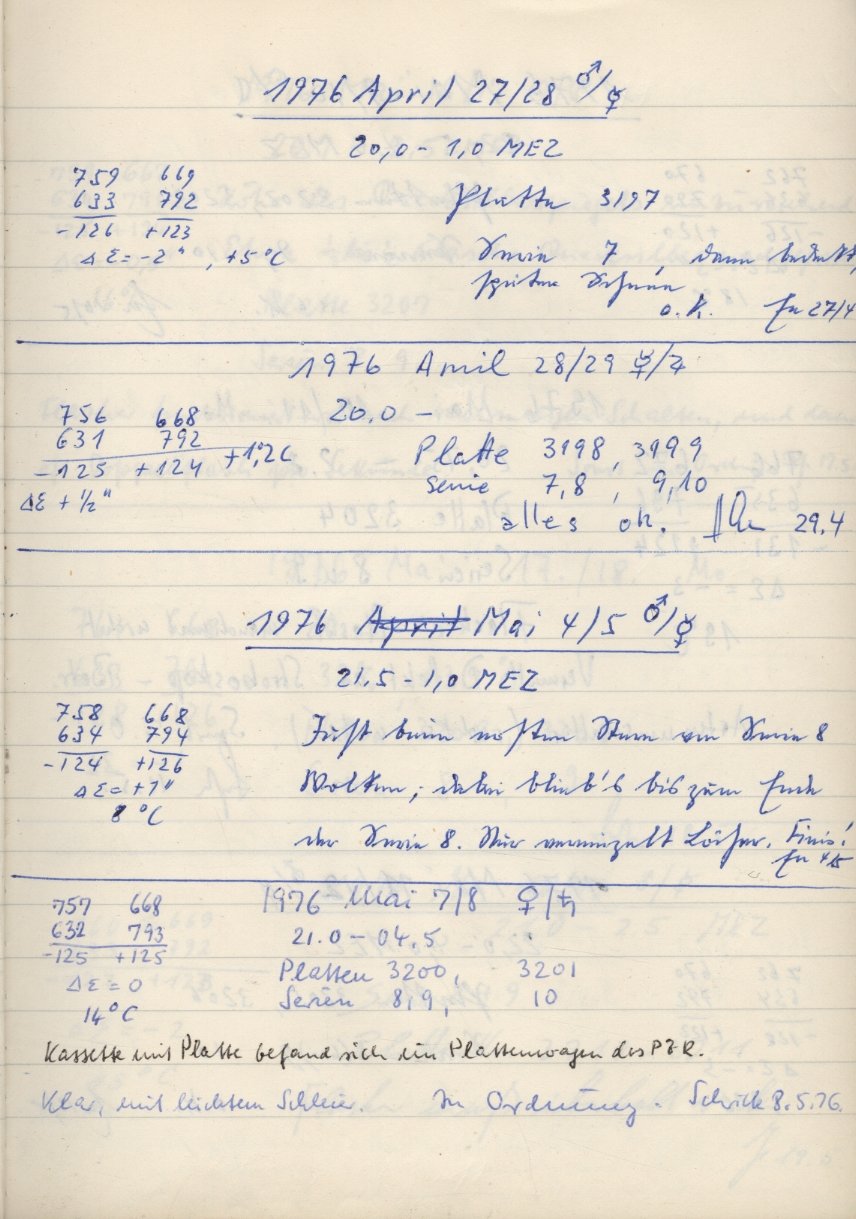 1976 April 27/28 ♂/☿
20,0 - 1,0 MEZ
759 669
633 792
-126 +123
Δε = -2" , +5°C
Platte 3197
Serie 7, dann bedeckt,
später Schnee
o.K. 27/4
1976 April 28/29 ☿/♃
756 668
631 792
-125 +124 +1,°2C
Δε + 1/2"
20.0 -
Platte 3198, 3199
Serie 7,8 , 9,10
alles ok. 29.4
1976 ~~April~~ Mai 4/5 ♂/☿
21.5 - 1,0 MEZ
758 668
634 794
-124 +126
Δε = +1"
8°C
Just beim ersten Stern von Serie 8
Wolken, dabei blieb's bis zum Ende
der Serie 8. Nur vereinzelt Löcher. Finis!
4/5
1976 Mai 7/8 ♀/♄
757 668
632 793
-125 +125
Δε = 0
14°C
21.0 - 04.5
Platten 3200, 3201
Serien 8,9, 10
Kassette mit Platte befand sich im Plattenwagen des PZR.
Klar, mit leichtem Schleier. In Ordnung. Schrick 8.5.76.